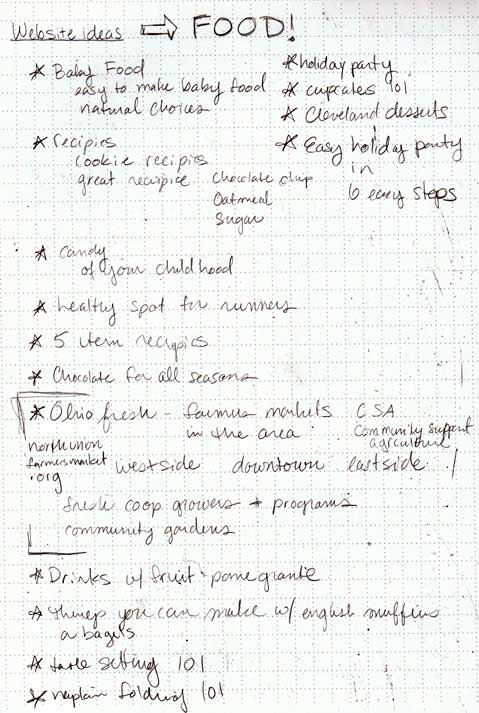 Website ideas ⇒ FOOD!
* Baby Food
easy to make baby food
natural choices
* holiday party
* cupcakes 101
* Cleveland desserts
* Easy holiday party
in
6 easy steps
* recipies
cookie recipies
great recipice
Chocolate chip
Oatmeal
Sugar
* Candy
of your childhood
* healthy spot for runners
* 5 item recipies
* Chocolate for all seasons
* Ohio fresh - farmers markets CSA
in the area community support
agriculture
north union
farmersmarket
.org
westside downtown eastside /
fresh coop growers + programs
community gardens
* Drinks w/ fruit - pomegrante
* things you can make w/ english muffins
or bagels
* table setting 101
* napkin folding 101